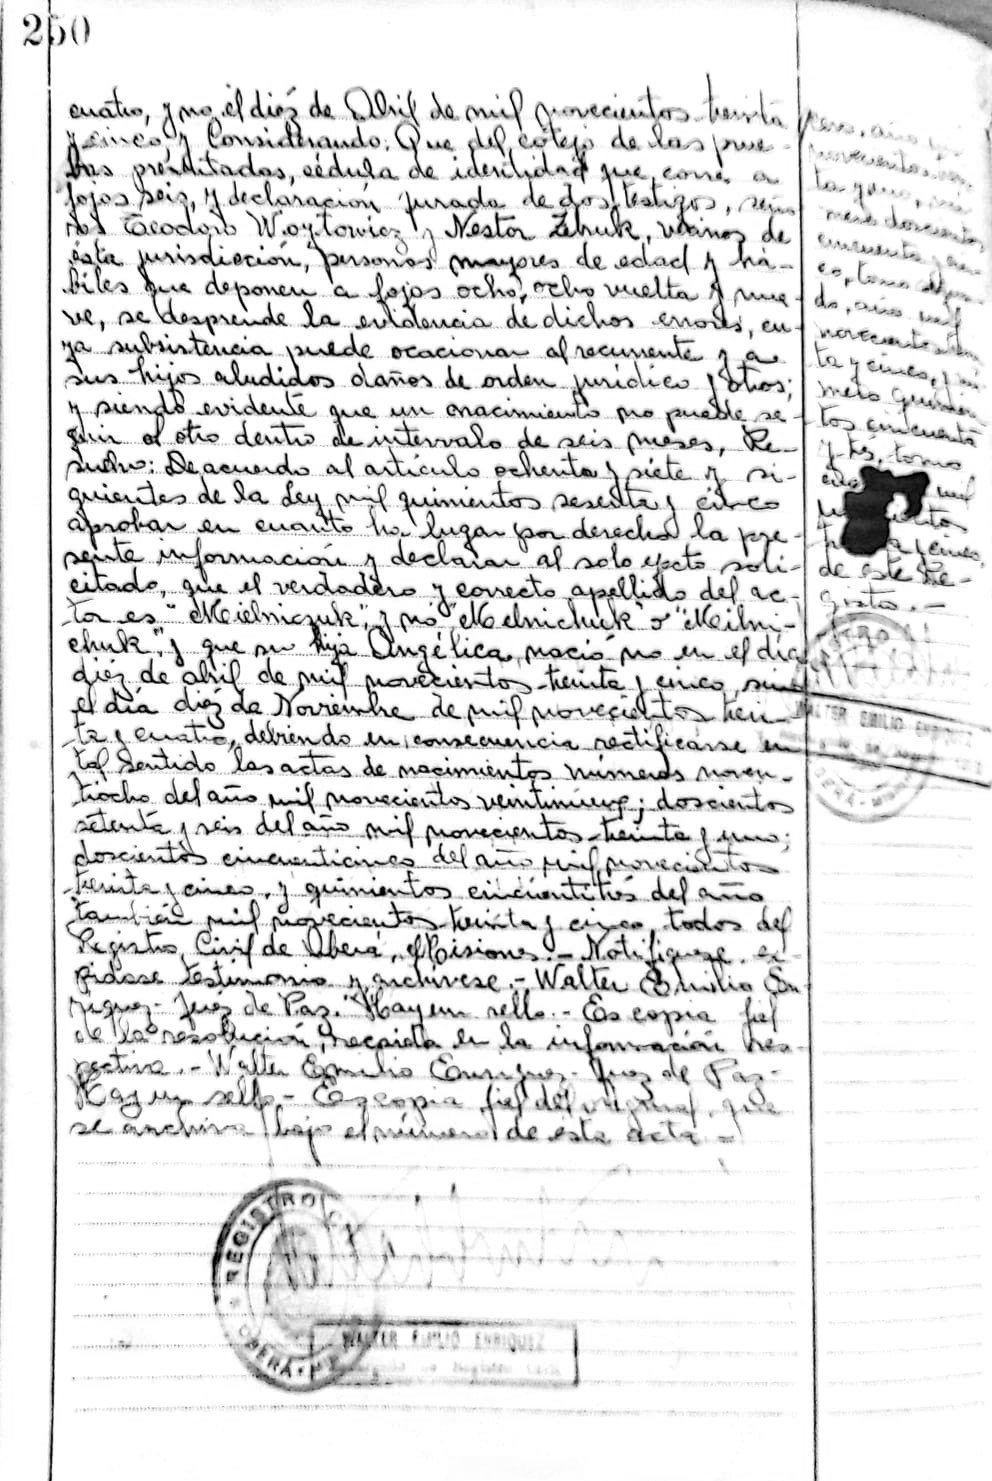 250
cuatro, y no el diéz de Abril de mil novecientos treinta
y cinco y Considerando: Que del cotejo de las prue-
bas preséntadas, cédula de identidad que corre a
fojas seis, y declaración jurada de dos testigos, seño
res Teodoro Woytowicz y Nestor Zebuk, vecinos de
ésta jurisdicción, personas mayores de edad y há-
biles que deponen a fojas ocho, ocho vuelta y nue-
ve, se desprende la evidencia de dichos errores, cu-
ya subsistencia puede ocacionar al recurrente y a
sus hijos aludidos daños de orden jurídico y otros;
y siendo evidente que un nacimiento no puede se-
guir al otro dentro de intervalo de seis meses, Re-
suelvo: De acuerdo al artículo ochenta y siete y si-
guientes de la Ley mil quinientos sesenta y cinco
aprobar en cuanto ha lugar por derecho la pre-
sente información y declarar al solo efecto soli-
citado, que el verdadero y correcto apellido del ac-
tor es "Mielniczuk", y no "Melnichuk" o "Milni-
chuk", y que su hija Angélica, nació no en el día
diéz de abril de mil novecientos treinta y cinco, sino
el día diéz de Noviembre de mil novecientos trein-
ta y cuatro, debiendo en consecuencia rectificarse en
tal sentido las actas de nacimientos números noven-
tiocho del año mil novecientos veintinueve; doscientos
setenta y seis del año mil novecientos treinta y uno;
doscientos cincuenticinco del año mil novecientos
treinta y cinco, y quinientos cincuentitrés del año
también mil novecientos treinta y cinco, todos del
Registro Civil de Oberá, Misiones.- Notifíquese, ex-
pidase testimonio y archívese.- Walter Emilio En
riquez- Juéz de Paz. Hay un sello.- Es copia fiel
de la resolución, recaida en la información res-
pectiva.- Walter Emilio Enriquez- Juez de Paz-
Hay un sello.- Es copia fiel del original, que
se archiva bajo el número de ésta acta.-
mero, año mil
novecientos
ta y uno,
mero doscientos
cincuenta y cin-
co, tomo
do, año mil
novecientos
ta y cinco, y
mero quinien
tos cincuenta
y trés, tomo
mil
y cinco,
de este Re-
gistro.-
WALTER EMILIO ENRIQUEZ
OBERÁ - MISIONES
REGISTRO
OBERÁ
WALTER EMILIO ENRIQUEZ
Encargado de Registro Civil